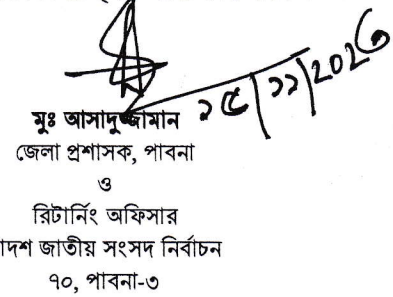 ১৫|১১|২০২৩
মুঃ আসাদুজ্জামান
জেলা প্রশাসক, পাবনা
ও
রিটার্নিং অফিসার
াদশ জাতীয় সংসদ নির্বাচন
৭০, পাবনা-৩